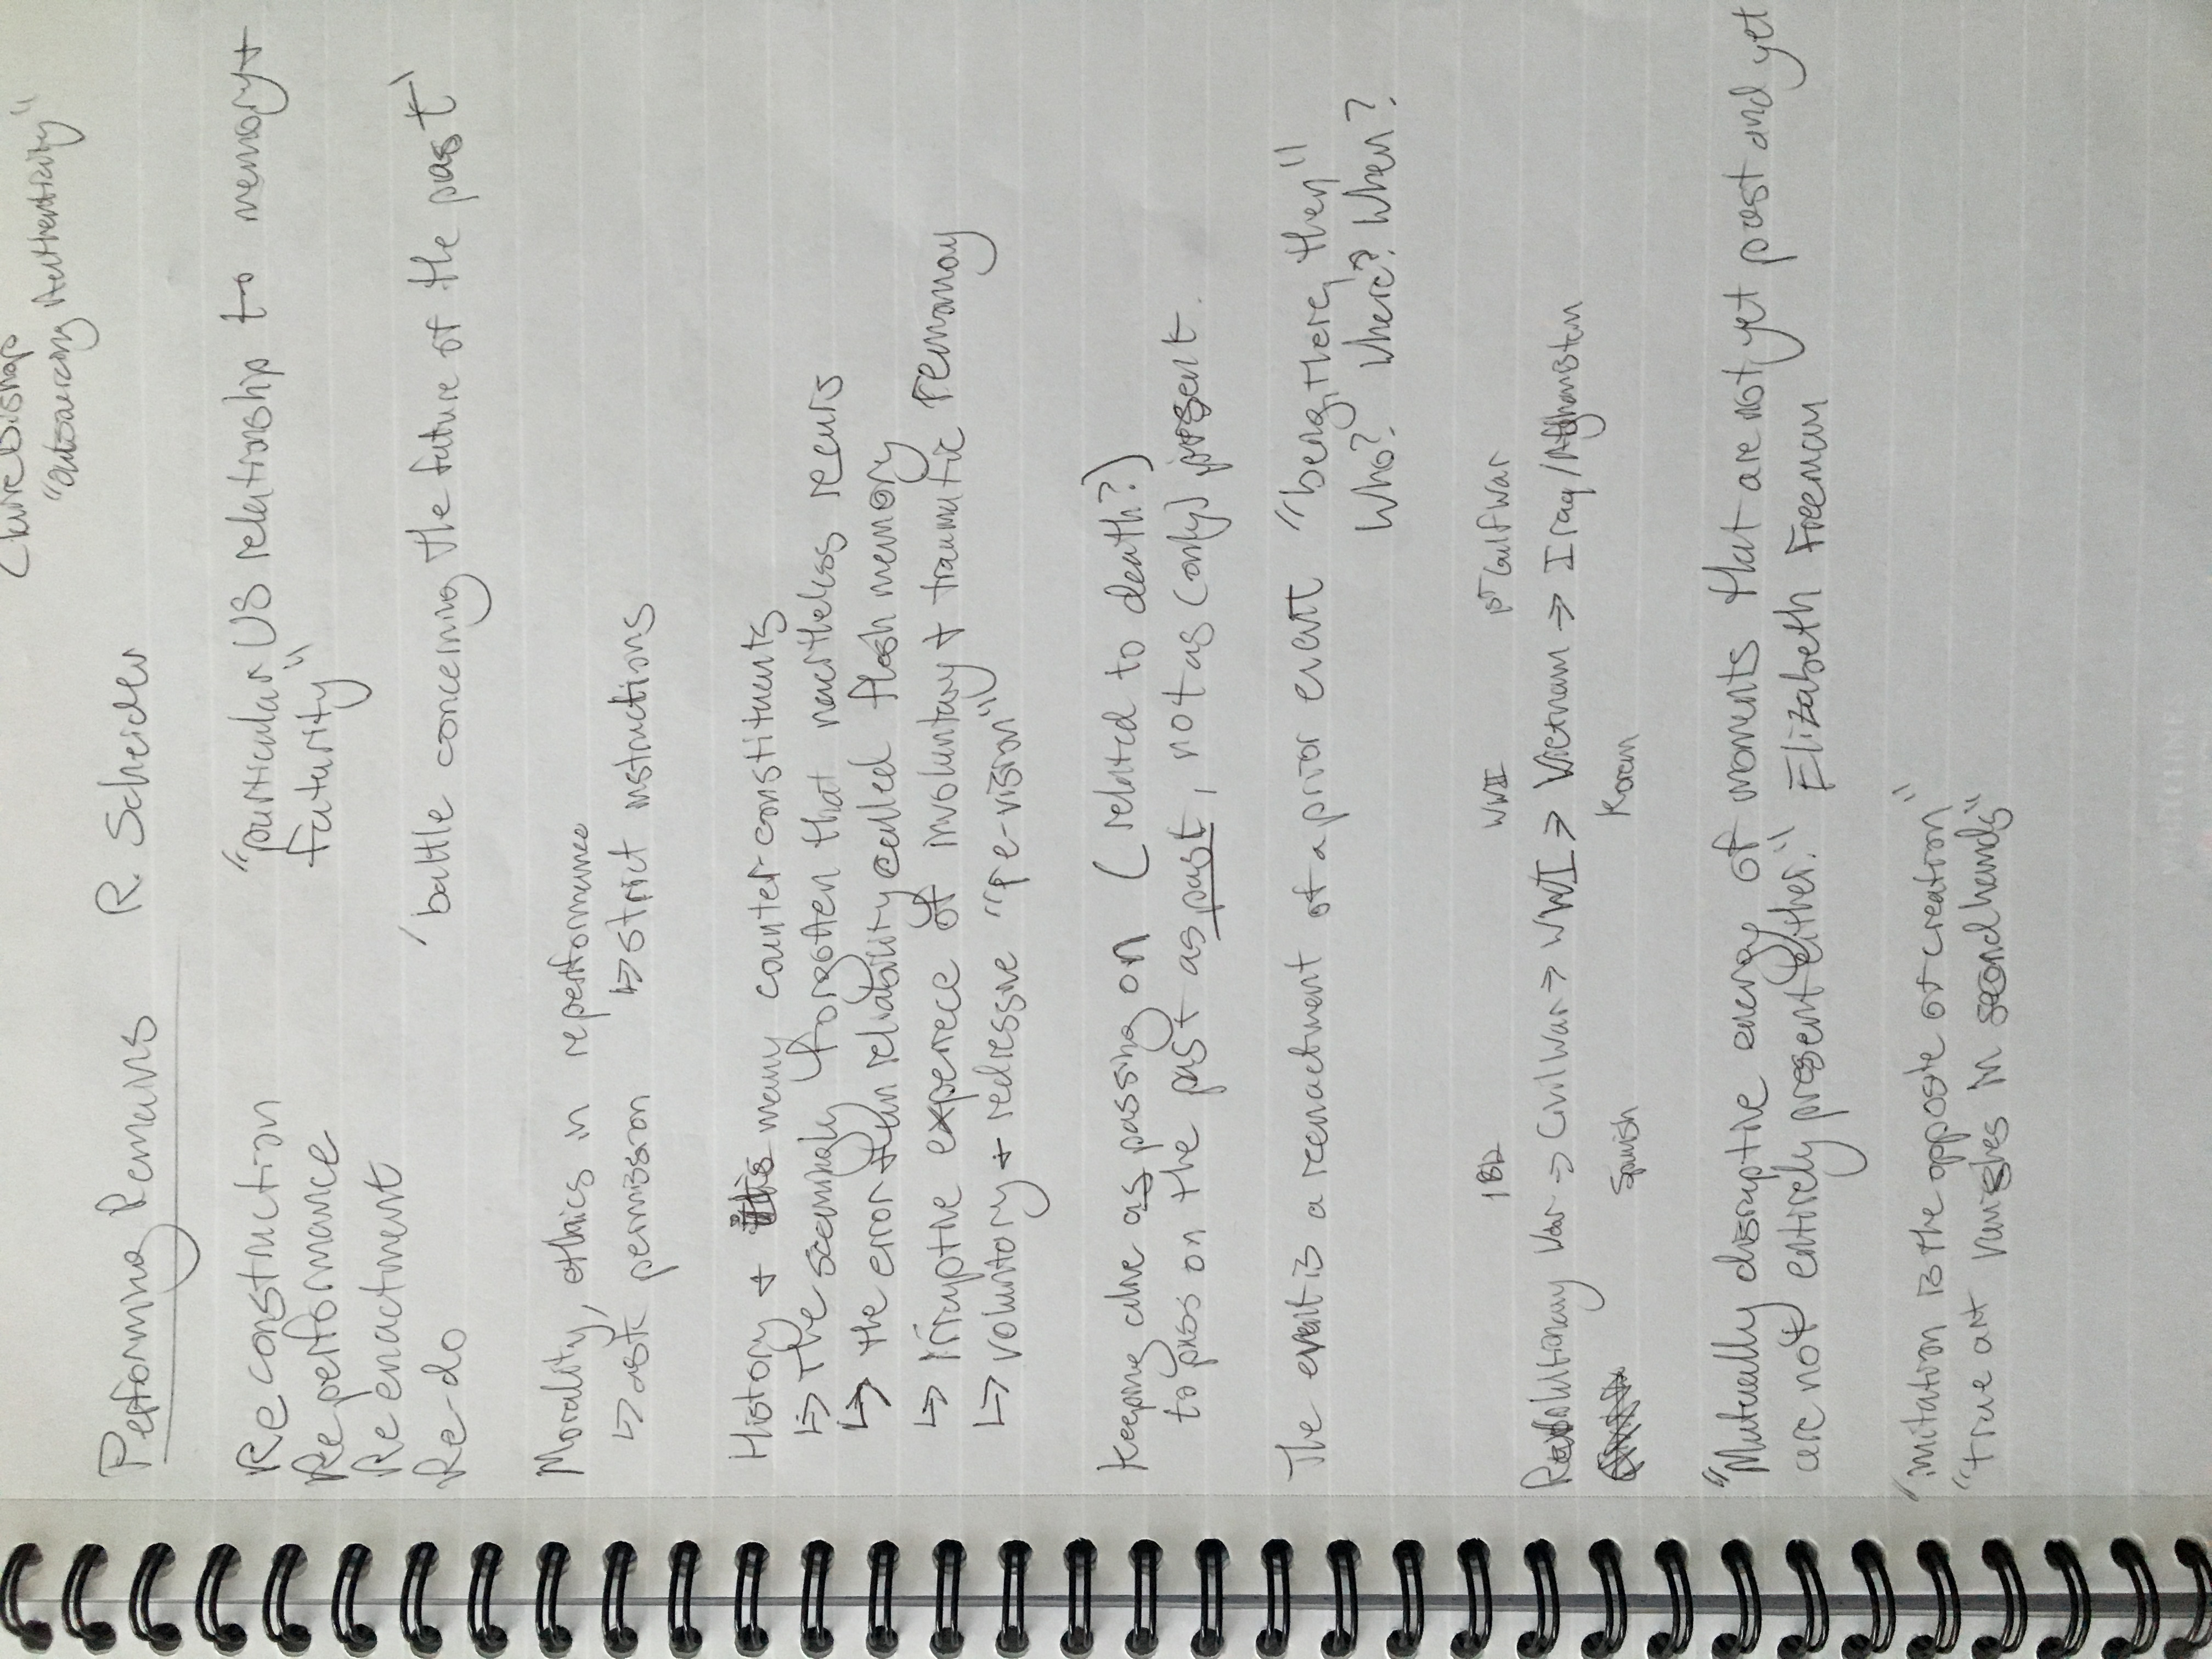 Claire Bishop
"outsourcing Authenticity"
Performing Remains R. Scheider
Reconstruction "particular US relationship to memory +
Reperformance futurity"
Reenactment
Re-do 'battle concerning the future of the past'
Morality, ethics in reperformance
↳ ask permission ↳ strict instructions
History + many counter-constituents
↳ the seemingly forgotten that nevertheless recurs
↳ the error-than reliability called flesh memory
↳ irruptive experience of involuntary + traumatic remaray
↳ voluntary + redressive "re-vision"
Keeping alive as passing on (related to death?)
to pass on the past as past, not as (only) present.
The event is a reenactment of a prior event "being there, then"
Who? Where? When?
1812 WWII 1st Gulf War
Revolutionary War → Civil War → WWI → Vietnam → Iraq/Afghanistan
Spanish Korean
"Mutually disruptive energy of moments that are not yet past and yet
are not entirely present either." Elizabeth Freeman
"imitation is the opposite of creation"
"true art vanishes in second hands"